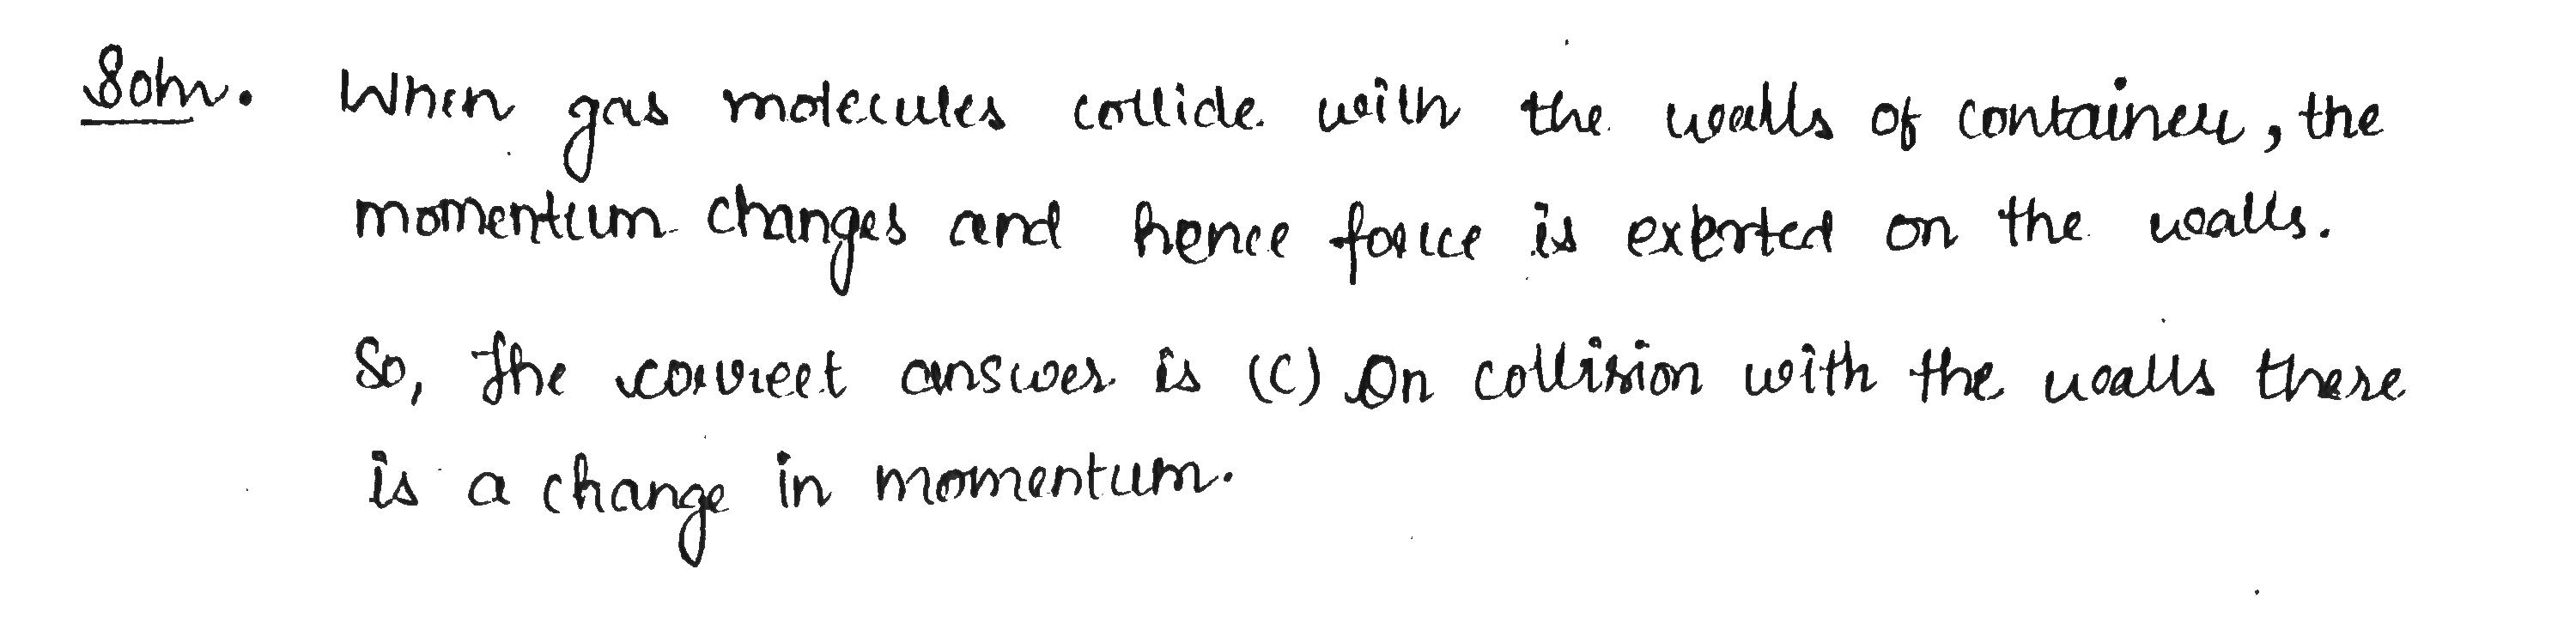 Soln. When gas molecules collide with the walls of container, the
momentum changes and hence force is exerted on the walls.
So, The correct answer is (C) On collision with the walls there
is a change in momentum.